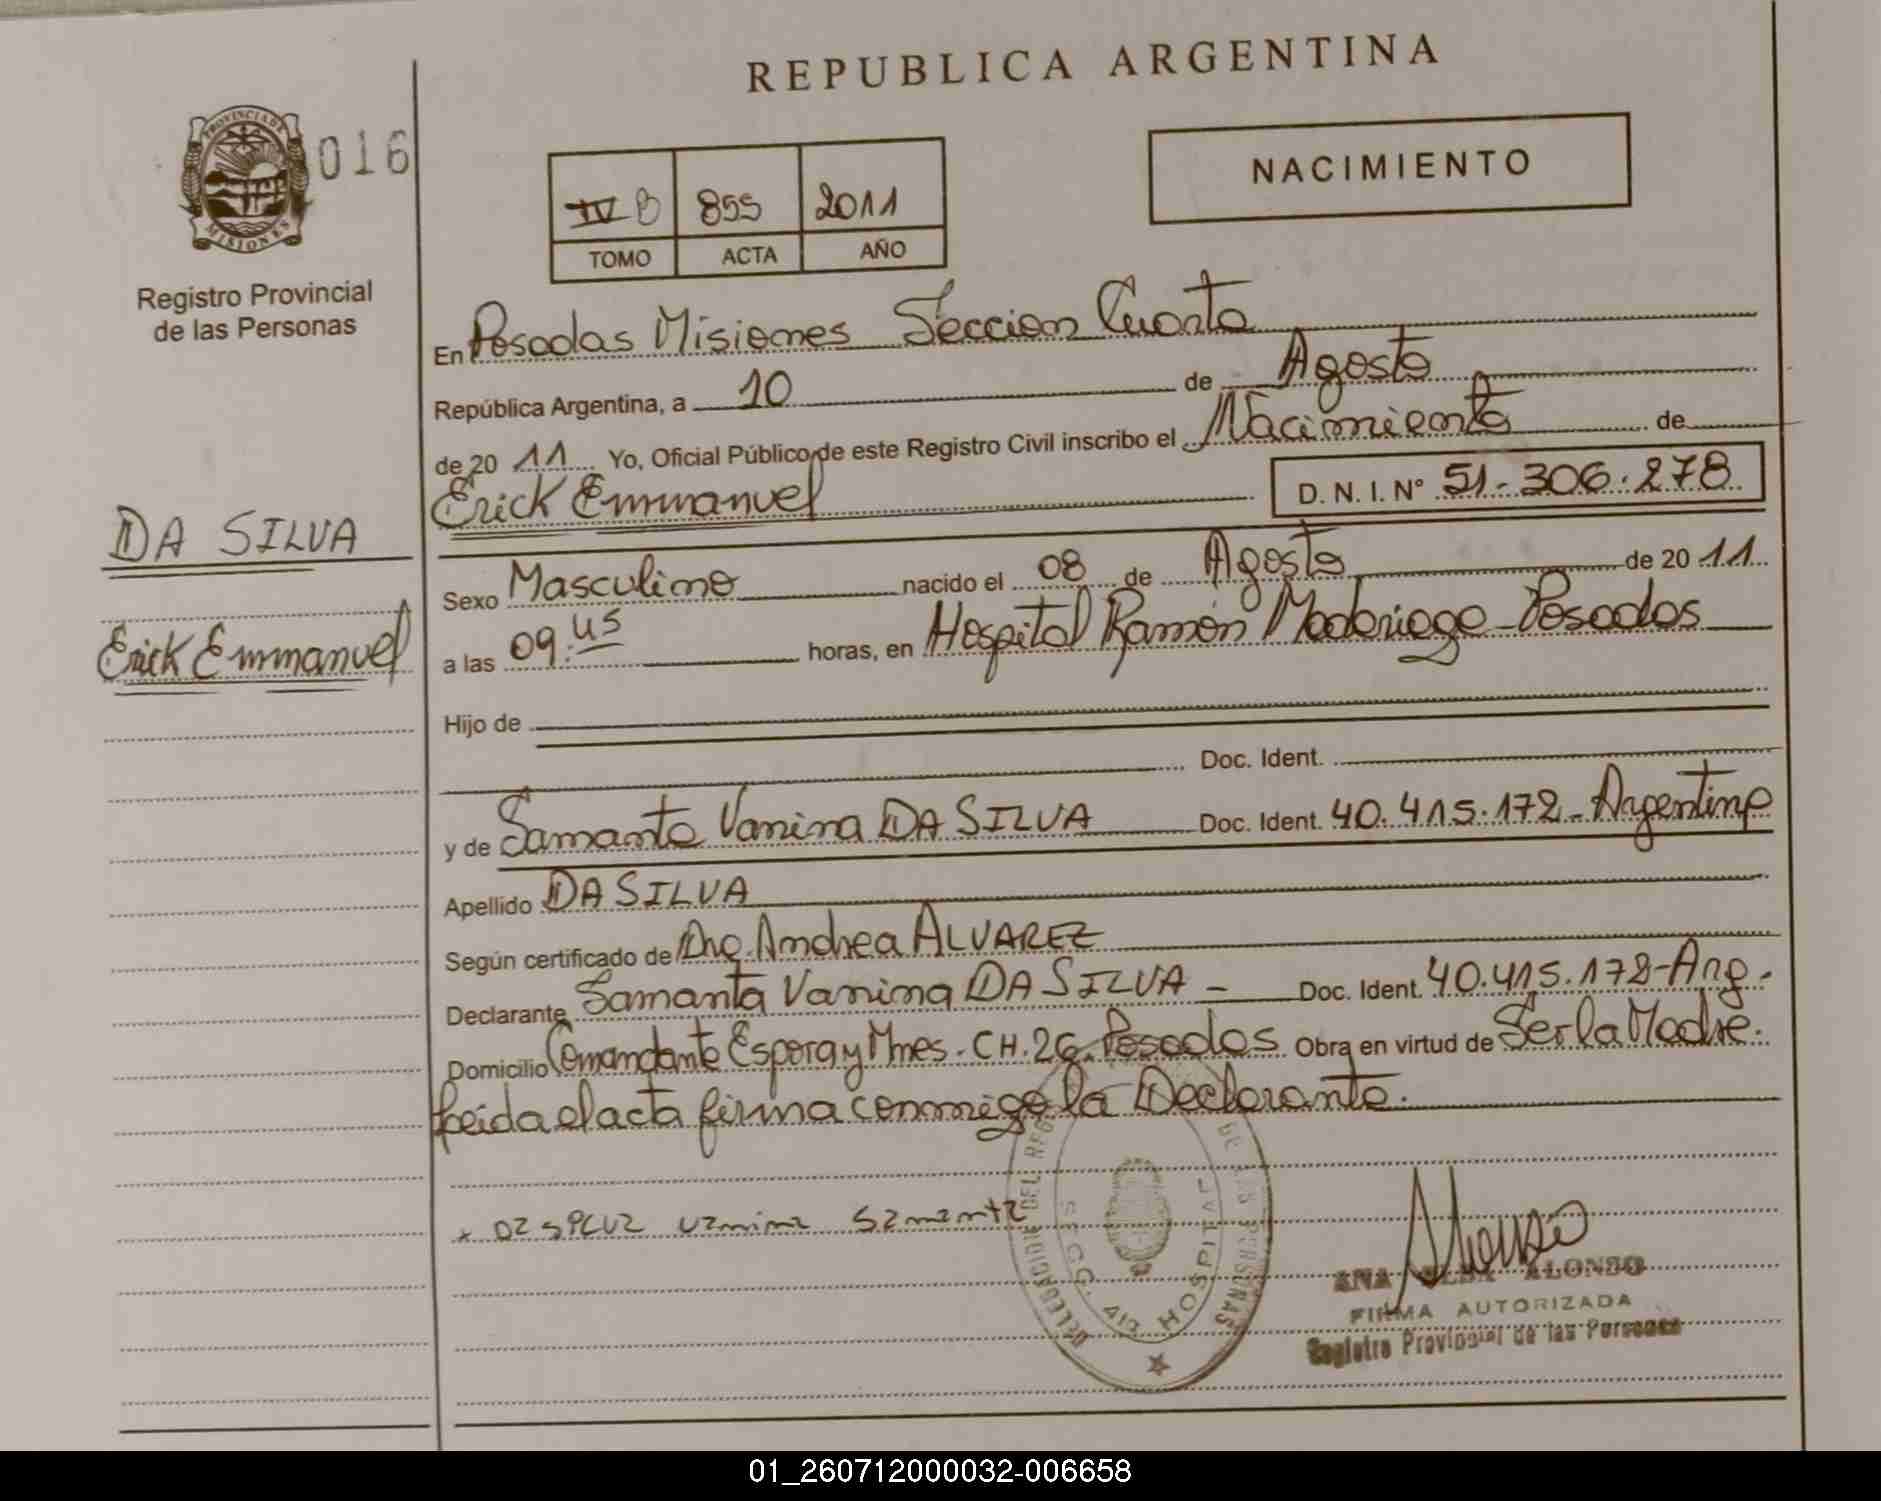 REPUBLICA ARGENTINA
PROVINCIA DE MISIONES
016
Registro Provincial
de las Personas
NACIMIENTO
IV B 855 2011
TOMO ACTA AÑO
En Posadas Misiones Seccion Cuarta
República Argentina, a 10 de Agosto
de 20 11 Yo, Oficial Público de este Registro Civil inscribo el Nacimiento de
Erick Emmanuel D. N. I. N° 51-306.278
DA SILVA
Erick Emmanuel
Sexo Masculino nacido el 08 de Agosto de 20 11
a las 09:45 horas, en Hospital Ramón Madariaga-Posadas
Hijo de
Doc. Ident.
y de Samanta Vanina DA SILVA Doc. Ident. 40.415.172-Argentina
Apellido DA SILVA
Según certificado de Dra. Andrea ALVAREZ
Declarante Samanta Vanina DA SILVA - Doc. Ident. 40.415.172-Arg.
Domicilio Comandante Espora y Mnes. CH.26. Posadas Obra en virtud de Ser la Madre.
Leida el acta firma conmigo la Declarante.
Vanina Samanta
DELEGACION DEL REG DE LAS PERSONAS
SECC. 4ta HOSPITAL
ANA ELBA ALONSO
FIRMA AUTORIZADA
Registro Provincial de las Personas
01_260712000032-006658